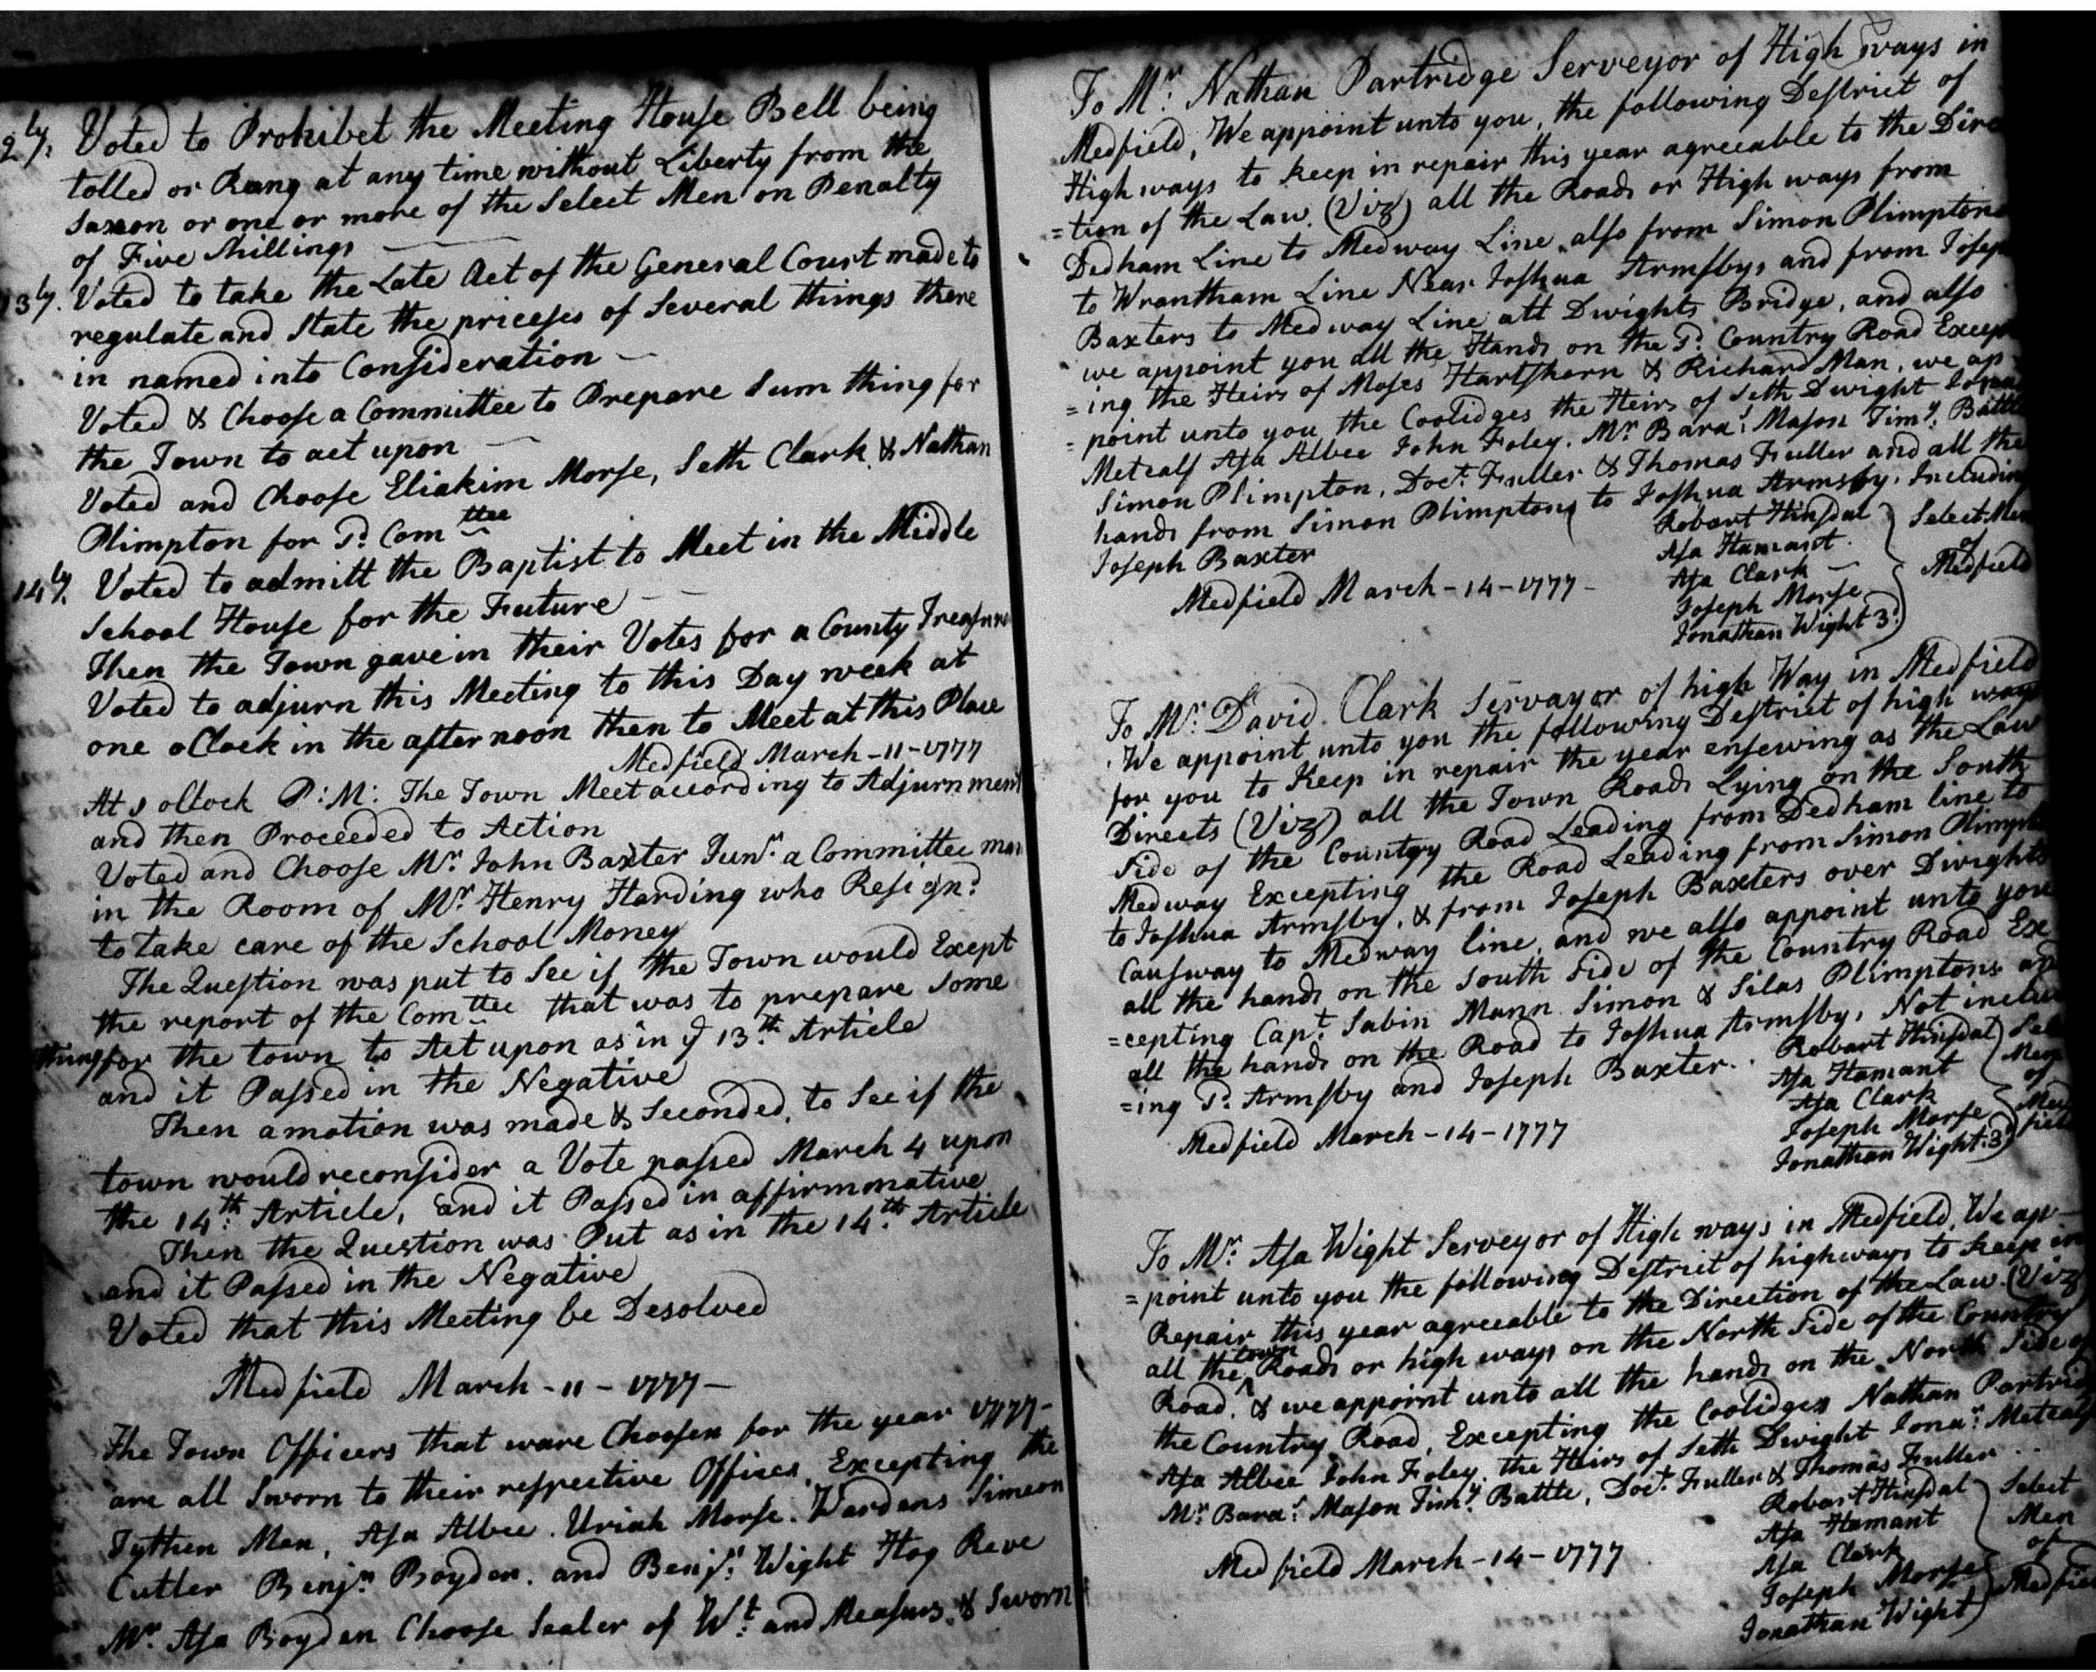 2ly. Voted to Prohibet the Meeting House Bell being
tolled or Rung at any time without Liberty from the
Saxon or one or more of the Select Men on Penalty
of Five Shillings
13ly. Voted to take the Late Act of the General Court made to
regulate and State the priceses of Several things there
in named into Consideration
Voted & Choose a Committee to Prepare Sum thing for
the Town to act upon
Voted and Choose Eliakim Morse, Seth Clark & Nathan
Plimpton for Sd. Comttee
14ly. Voted to admitt the Baptist to Meet in the Middle
School House for the Future
Then the Town gave in their Votes for a County Treasure
Voted to adjurn this Meeting to this Day week at
one oClock in the after noon then to Meet at this Place
Medfield March-11-1777
At 1 oClock P:M: The Town Meet according to Adjurnment
and then Proceeded to Action
Voted and Choose Mr. John Baxter Junr. a Committee man
in the Room of Mr. Henry Harding who Resignd.
to take care of the School Money
The Question was put to See if the Town would Exept
the report of the Comttee that was to prepare Some
thing for the town to Act upon as in ye 13th. Article
and it Passed in the Negative
Then a motion was made & Seconded, to See if the
town would reconsider a Vote passed March 4 upon
the 14th: Article, and it Passed in affirmmative
Then the Question was Put as in the 14th. Article
and it Passed in the Negative
Voted that this Meeting be Desolved
Medfield March-11-1777-
The Town Officers that ware Choosen for the year 1777-
are all Sworn to their respective Offices, Excepting the
Tythen Men, Asa Albee. Uriah Morse. Wardens Simeon
Cutler Benjn. Boyden. and Benjn. Wight Hog Reve
Mr. Asa Boyden Choose Sealer of Wt. and Measurs & Sworn
To Mr. Nathan Partridge Serveyor of High Ways in
Medfield, We appoint unto you, the following Destrict of
High ways to keep in repair this year agreeable to the Dire
=tion of the Law. (Viz) all the Roads or High ways from
Dedham Line to Medway Line also from Simon Plimptons
to Wrantham Line Near Joshua Armsbys and from Joseph
Baxters to Medway Line att Dwights Bridge, and also
we appoint you all the Hands on the Sd. Country Road Except
=ing the Heirs of Moses Hartshorn & Richard Man, we ap
=point unto you the Coolidges the Heirs of Seth Dwight Jonan
Metcalf Asa Albee John Foley. Mr. Bara.s Mason Timy. Battle
Simon Plimpton, Doct. Fuller & Thomas Fuller and all the
hands from Simon Plimptons to Joshua Armsby, Includin
Joseph Baxter
Medfield March-14-1777-
Robart Hinsdal
Asa Hamant
Asa Clark
Joseph Morse
Jonathan Wight 3d.
Select Men
of
Medfield
To Mr. David Clark Servayor of high Way in Medfield
We appoint unto you the following Destrict of high ways
for you to Keep in repair the year ensewing as the Law
Directs (Viz) all the Town Roads Lying on the South
Side of the Country Road Leading from Dedham line to
Medway Excepting the Road Leading from Simon Plimpton
to Joshua Armsby, & from Joseph Baxters over Dwights
Causway to Medway line, and we also appoint unto you
all the hands on the South Side of the Country Road Ex
=cepting Capt. Sabin Mann Simon & Silas Plimptons and
all the hands on the Road to Joshua Armsby, Not includ
=ing Sd. Armsby and Joseph Baxter.
Medfield March-14-1777
Robart Hinsdal
Asa Hamant
Asa Clark
Joseph Morse
Jonathan Wight 3d
Select
Men
of
Med
field
To Mr. Asa Wight Serveyor of High ways in Medfield, We ap
=point unto you the following Destrict of highways to keep in
Repair this year agreeable to the Direction of the Law. (Viz)
all the town Roads or high ways on the North Side of the Country
Road. & we appoint unto all the hands on the North Side of
the Country Road, Excepting the Coolidges Nathan Partridge
Asa Albee John Foley. the Heirs of Seth Dwight Jonan. Metcalf
Mr. Bara.s Mason Timy. Battle, Doct. Fuller & Thomas Fuller
Medfield March-14-1777
Robart Hinsdal
Asa Hamant
Asa Clark
Joseph Morse
Jonathan Wight
Select
Men
of
Medfield